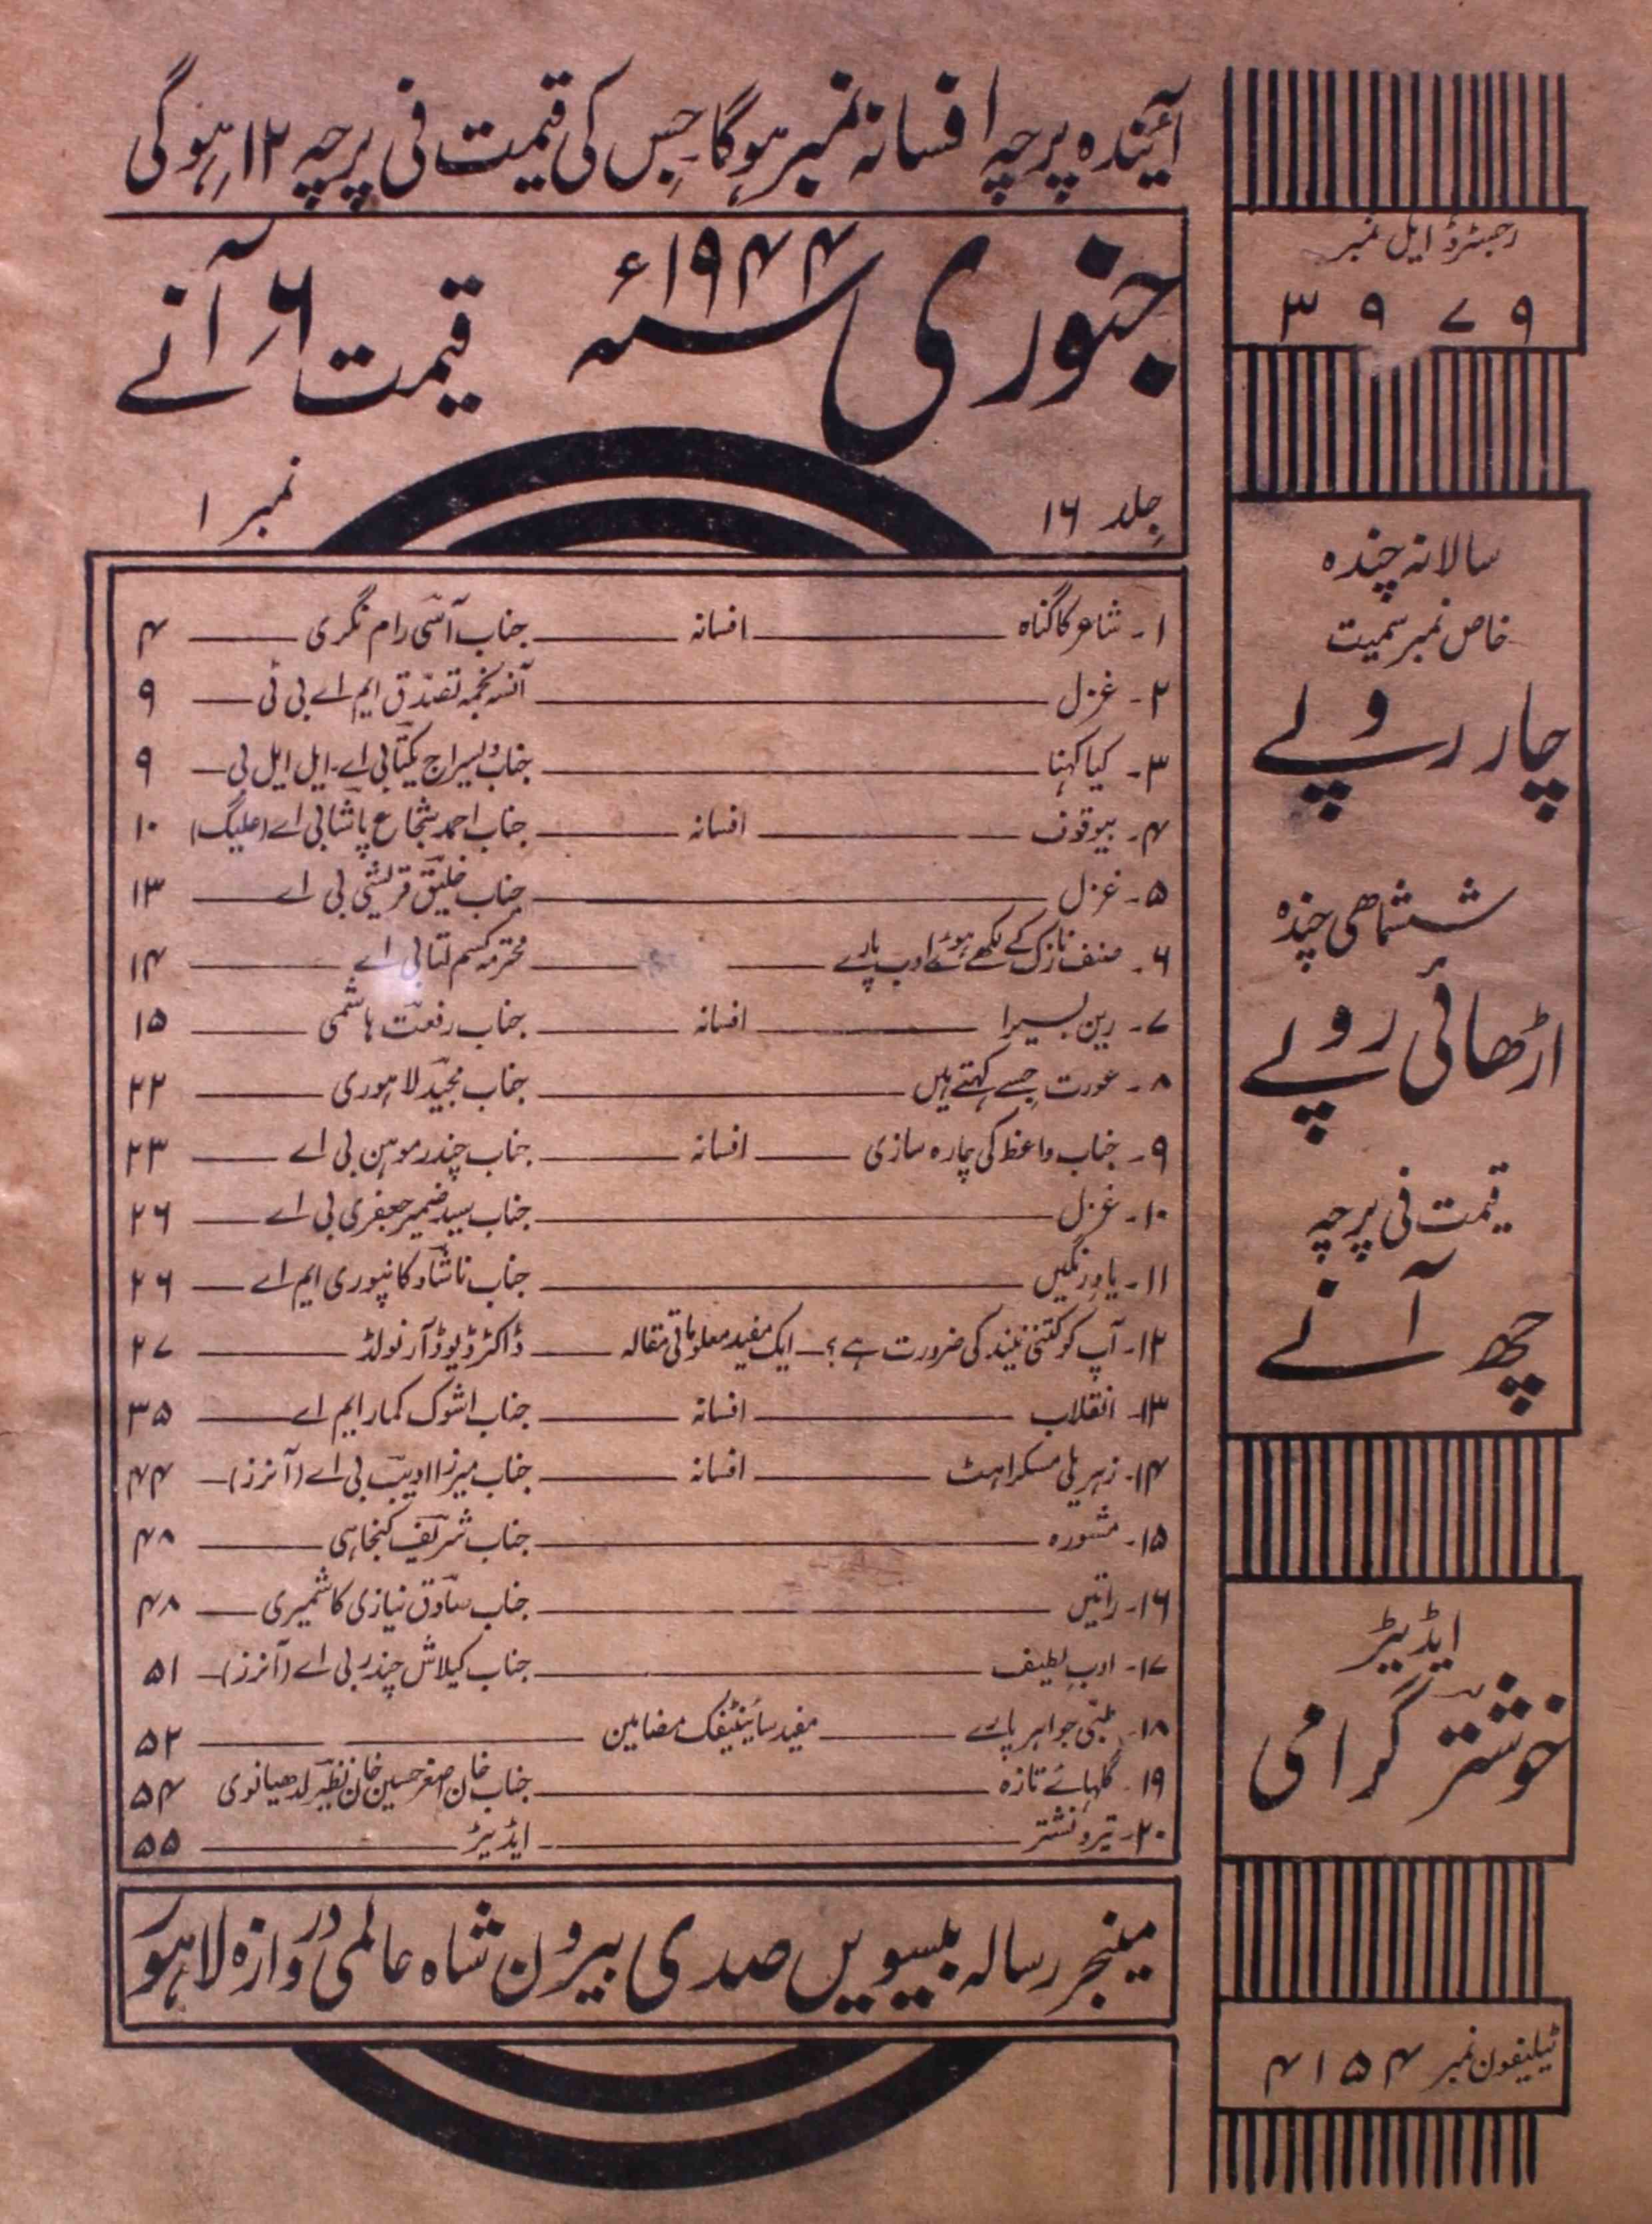 آئیندہ پرچہ افسانہ نمبر ہوگا جس کی قیمت فی پرچہ ۱۲؍ ہوگی
جنوری سنہ ۱۹۴۴ء قیمت ۶؍ آنے
جلد ۱۶ نمبر ۱
۱۔ شاعر کا گناہ افسانہ جناب آسی رام نگری ۴
۲۔ غزل آنسہ نجمہ تصدق ایم اے بی ٹی ۹
۳۔ کیا کہنا جناب دیسراج یکتا بی اے۔ ایل ایل بی ۹
۴۔ بیوقوف افسانہ جناب احمد شجاع پاشا بی اے (علیگ) ۱۰
۵۔ غزل جناب خلیق قریشی بی اے ۱۳
۶۔ صنف نازک کے لکھے ہوئے ادب پارے محترمہ کسم لتا بی اے ۱۴
۷۔ رین بسیرا افسانہ جناب رفعت ہاشمی ۱۵
۸۔ عورت جسے کہتے ہیں جناب مجید لاہوری ۲۲
۹۔ جناب واعظ کی چارہ سازی افسانہ جناب چندر موہن بی اے ۲۳
۱۰۔ غزل جناب سید ضمیر جعفری بی اے ۲۶
۱۱۔ یادِ رنگیں جناب ناشاد کانپوری ایم اے ۲۶
۱۲۔ آپ کو کتنی نیند کی ضرورت ہے؟ ایک مفید معلوماتی مقالہ ڈاکٹر ڈیوڈ آرنولڈ ۲۷
۱۳۔ انقلاب افسانہ جناب اشوک کمار ایم اے ۳۵
۱۴۔ زہریلی مسکراہٹ افسانہ جناب میرزا ادیب بی اے (آنرز) ۴۴
۱۵۔ مشورہ جناب شریف کنجاہی ۴۸
۱۶۔ راتیں جناب صادق نیازی کاشمیری ۴۸
۱۷۔ ادبِ لطیف جناب کیلاش چندر بی اے (آنرز) ۵۱
۱۸۔ طبی جواہر پارے مفید سائینٹیفک مضامین ۵۲
۱۹۔ گلہائے تازہ جناب خان اصغر حسین خان نظیر لدھیانوی ۵۴
۲۰۔ تیر و نشتر ایڈیٹر ۵۵
مینجر رسالہ بیسویں صدی بیرون شاہ عالمی دروازہ لاہور
رجسٹرڈ ایل نمبر
۳۹۷۹
سالانہ چندہ
خاص نمبر سمیت
چار روپے
ششماھی چندہ
اڑھائی روپے
قیمت فی پرچہ
چھ آنے
ایڈیٹر
خوشتر گرامی
ٹیلیفون نمبر ۴۱۵۴